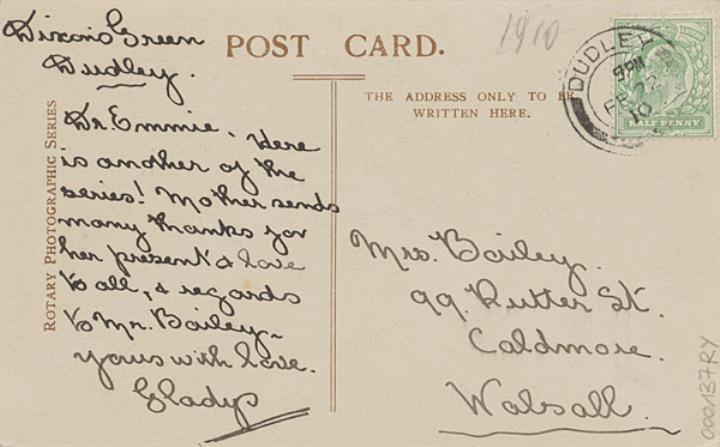 Dixons Green
Dudley.
POST CARD.
1910
DUDLEY
9PM
FE 22
10
HALF PENNY
THE ADDRESS ONLY TO BE
WRITTEN HERE.
ROTARY PHOTOGRAPHIC SERIES
Dr. Emmie. Here
is another of the
series! Mother sends
many thanks for
her present & love
to all, & regards
to Mr. Bailey-
yours with love.
Gladys
Mrs. Bailey.
99. Rutter St.
Caldmore.
Walsall.
000/137RY